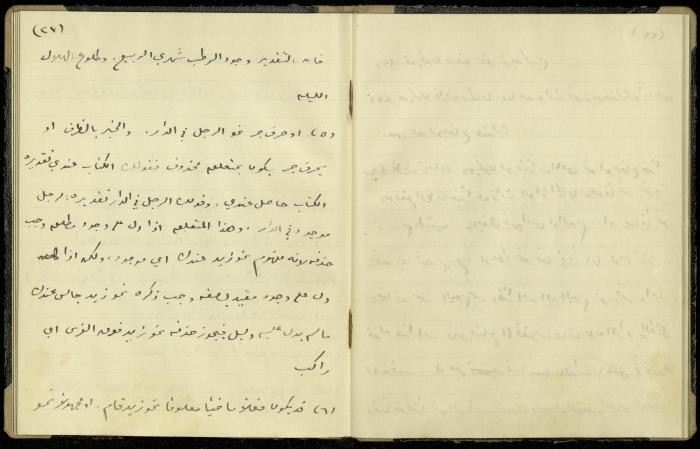 (٢٣)
فان التقدير وجود الرطب شهري الربيع، وطلوع الهلال
الليلة
(٥) او حرف جر نحو الرجل في الدار. والخبر بالظرف او
بحرف جر يكون بمتعلقه محذوف فقولك الكتاب عندي تقديره
الكتاب حاصل عندي، وقولك الرجل في الدار تقديره الرجل
موجود في الدار. وهذا المتعلق اذا دل على وجود مطلق وجب
حذفه لانه مفهوم نحو زيد عندك اي موجود، ولكن اذا
دل على وجود مقيد بصفة وجب ذكره نحو زيد جالس عندك
ما لم يدل عليه دليل فيجوز حذفه نحو زيد فوق الفرس اي
راكب
(٦) قد يكون فعلا ماضيا معلوما نحو زيد قام، او مجهولا نحو